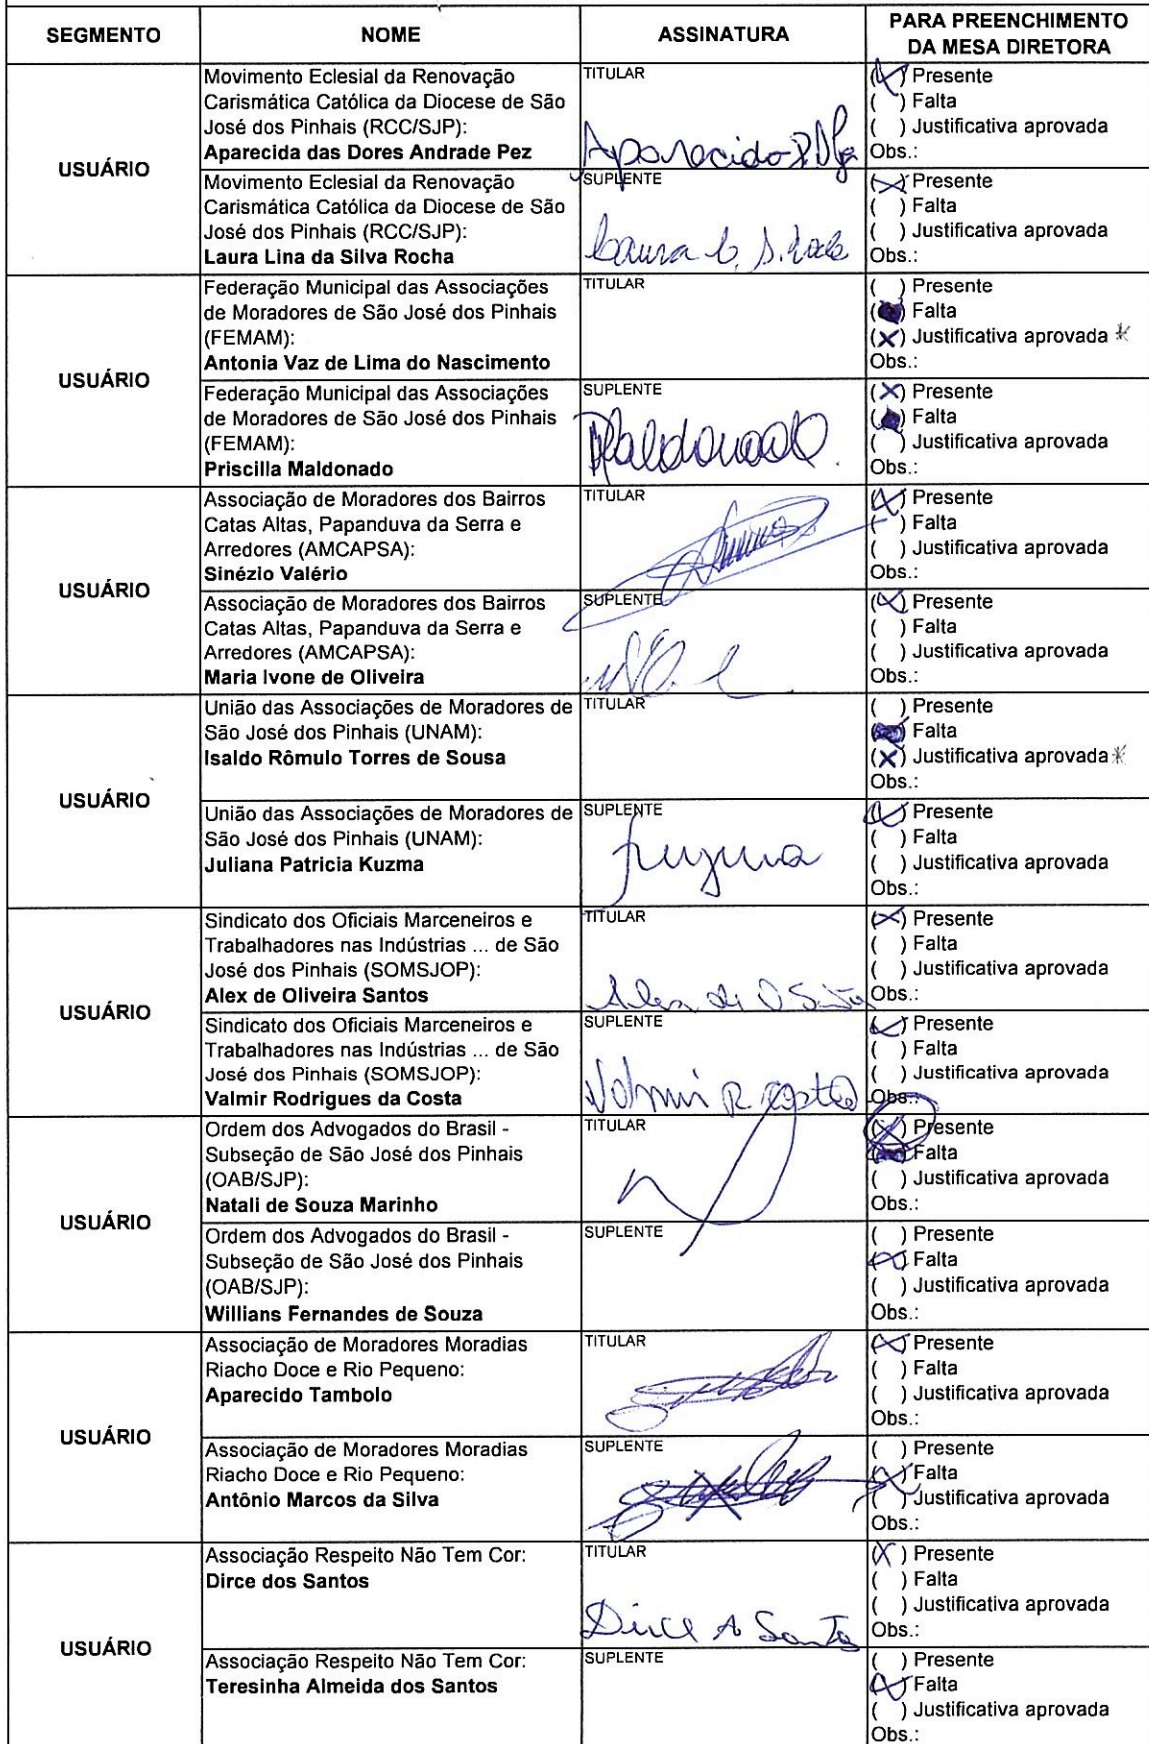 SEGMENTO
NOME
ASSINATURA
PARA PREENCHIMENTO
DA MESA DIRETORA
USUÁRIO
Movimento Eclesial da Renovação
Carismática Católica da Diocese de São
José dos Pinhais (RCC/SJP):
Aparecida das Dores Andrade Pez
TITULAR
(X) Presente
( ) Falta
( ) Justificativa aprovada
Obs.:
Movimento Eclesial da Renovação
Carismática Católica da Diocese de São
José dos Pinhais (RCC/SJP):
Laura Lina da Silva Rocha
SUPLENTE
Laura L. S. Rocha
(X) Presente
( ) Falta
( ) Justificativa aprovada
Obs.:
USUÁRIO
Federação Municipal das Associações
de Moradores de São José dos Pinhais
(FEMAM):
Antonia Vaz de Lima do Nascimento
TITULAR
( ) Presente
( ) Falta
(X) Justificativa aprovada *
Obs.:
Federação Municipal das Associações
de Moradores de São José dos Pinhais
(FEMAM):
Priscilla Maldonado
SUPLENTE
PMaldonado
(X) Presente
( ) Falta
( ) Justificativa aprovada
Obs.:
USUÁRIO
Associação de Moradores dos Bairros
Catas Altas, Papanduva da Serra e
Arredores (AMCAPSA):
Sinézio Valério
TITULAR
(X) Presente
( ) Falta
( ) Justificativa aprovada
Obs.:
Associação de Moradores dos Bairros
Catas Altas, Papanduva da Serra e
Arredores (AMCAPSA):
Maria Ivone de Oliveira
SUPLENTE
(X) Presente
( ) Falta
( ) Justificativa aprovada
Obs.:
USUÁRIO
União das Associações de Moradores de
São José dos Pinhais (UNAM):
Isaldo Rômulo Torres de Sousa
TITULAR
( ) Presente
( ) Falta
(X) Justificativa aprovada *
Obs.:
União das Associações de Moradores de
São José dos Pinhais (UNAM):
Juliana Patricia Kuzma
SUPLENTE
(X) Presente
( ) Falta
( ) Justificativa aprovada
Obs.:
USUÁRIO
Sindicato dos Oficiais Marceneiros e
Trabalhadores nas Indústrias ... de São
José dos Pinhais (SOMSJOP):
Alex de Oliveira Santos
TITULAR
Alex de O Santos
(X) Presente
( ) Falta
( ) Justificativa aprovada
Obs.:
Sindicato dos Oficiais Marceneiros e
Trabalhadores nas Indústrias ... de São
José dos Pinhais (SOMSJOP):
Valmir Rodrigues da Costa
SUPLENTE
Valmir R Costa
(X) Presente
( ) Falta
( ) Justificativa aprovada
Obs.:
USUÁRIO
Ordem dos Advogados do Brasil -
Subseção de São José dos Pinhais
(OAB/SJP):
Natali de Souza Marinho
TITULAR
(X) Presente
( ) Falta
( ) Justificativa aprovada
Obs.:
Ordem dos Advogados do Brasil -
Subseção de São José dos Pinhais
(OAB/SJP):
Willians Fernandes de Souza
SUPLENTE
( ) Presente
(X) Falta
( ) Justificativa aprovada
Obs.:
USUÁRIO
Associação de Moradores Moradias
Riacho Doce e Rio Pequeno:
Aparecido Tambolo
TITULAR
(X) Presente
( ) Falta
( ) Justificativa aprovada
Obs.:
Associação de Moradores Moradias
Riacho Doce e Rio Pequeno:
Antônio Marcos da Silva
SUPLENTE
( ) Presente
(X) Falta
( ) Justificativa aprovada
Obs.:
USUÁRIO
Associação Respeito Não Tem Cor:
Dirce dos Santos
TITULAR
Dirce A Santos
(X) Presente
( ) Falta
( ) Justificativa aprovada
Obs.:
Associação Respeito Não Tem Cor:
Teresinha Almeida dos Santos
SUPLENTE
( ) Presente
(X) Falta
( ) Justificativa aprovada
Obs.: